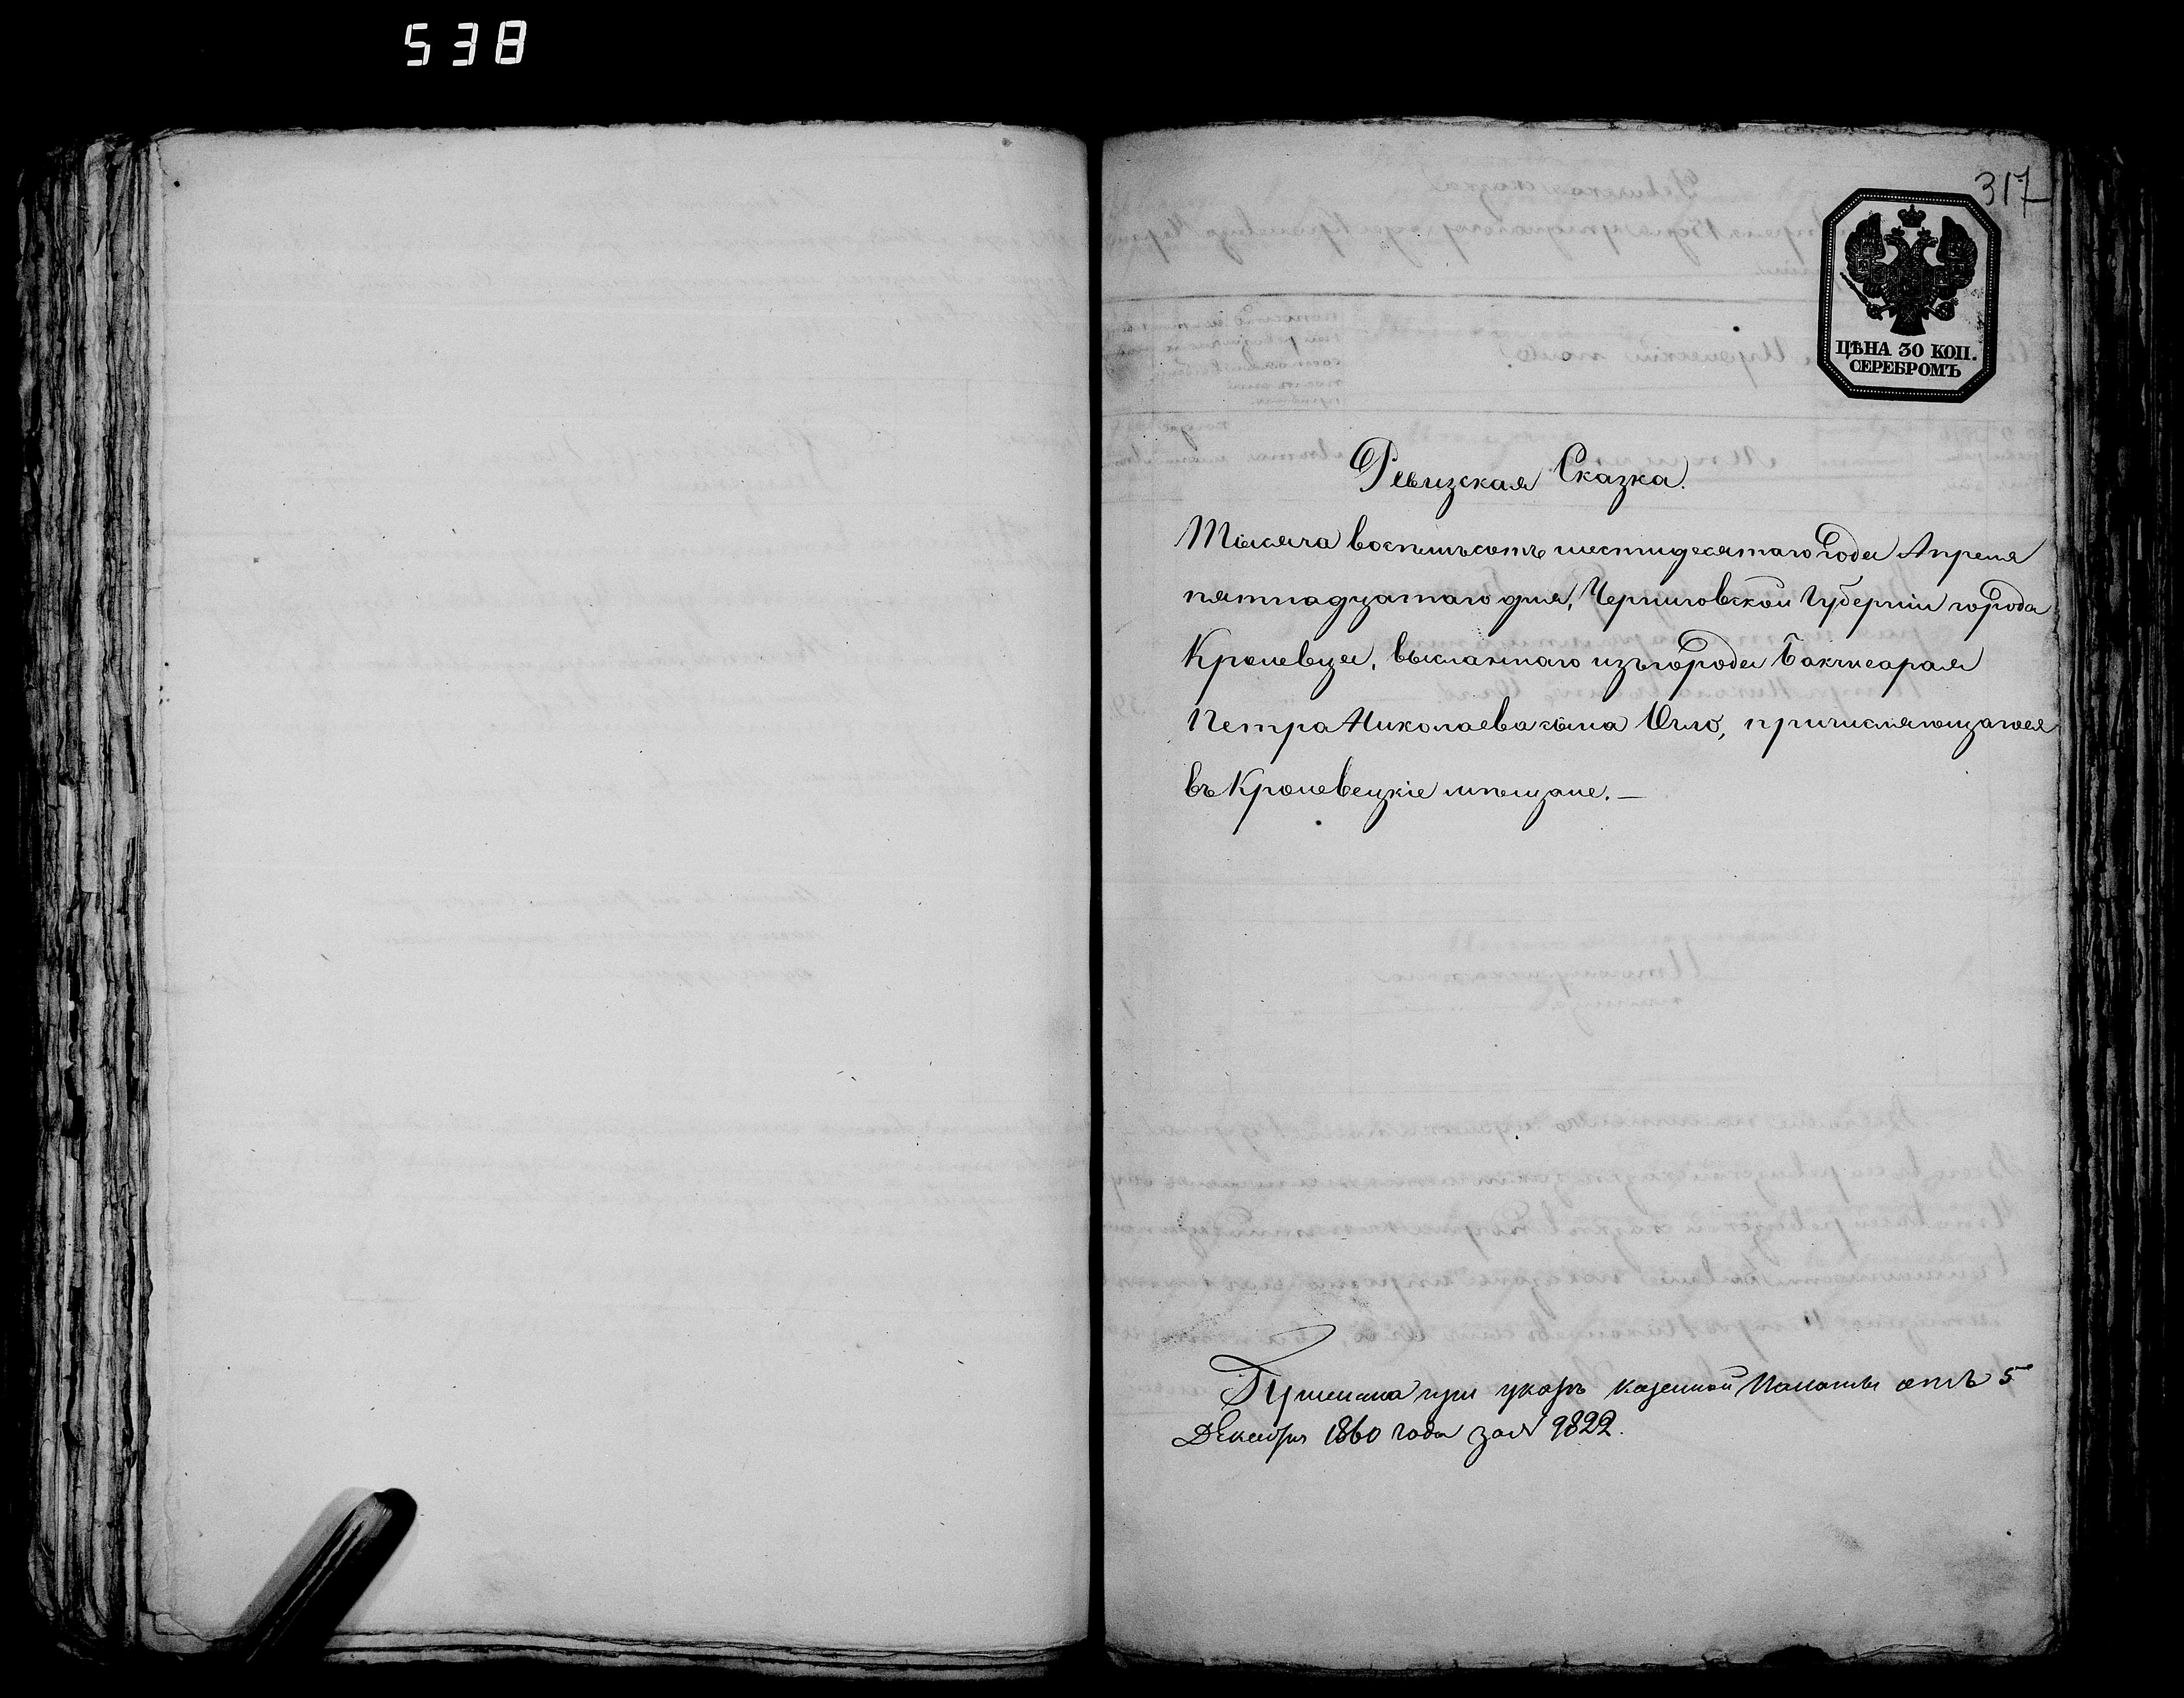 538
317
ЦѢНА 30 КОП.
СЕРЕБРОМЪ
Ревизская Сказка.
Тысяча восемьсотъ шестидесятаго года Апреля
пятнадцатаго дня, Черниговской Губерніи города
Кролевца, высланнаго изъ города Бакчисарая
Петра Николаева сына, причисляющагося
въ Кролевецкіе мѣщане. —
при указѣ казенной Палаты отъ 5
Декабря 1860 года за № 9822.